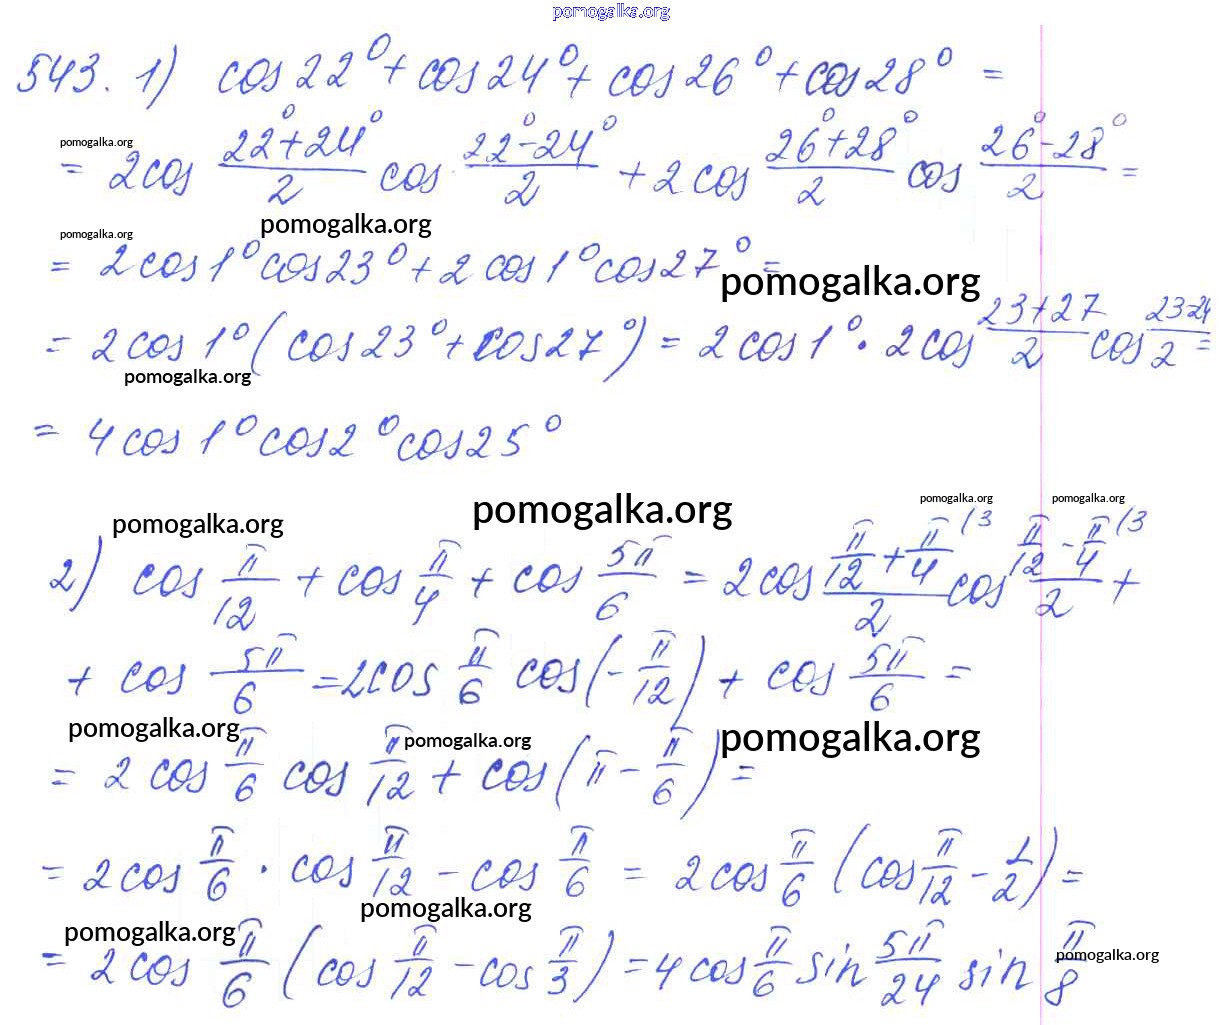 pomogalka.org
543. 1) cos 22° + cos 24° + cos 26° + cos 28° =
pomogalka.org
= 2cos (22°+24°)/2 cos (22°-24°)/2 + 2cos (26°+28°)/2 cos (26°-28°)/2 =
pomogalka.org
pomogalka.org
= 2cos 1° cos 23° + 2 cos 1° cos 27° =
pomogalka.org
= 2cos 1° (cos 23° + cos 27°) = 2cos 1° · 2cos (23+27)/2 cos (23-24)/2 =
pomogalka.org
= 4cos 1° cos 2° cos 25°
pomogalka.org
pomogalka.org
pomogalka.org
pomogalka.org
2) cos π/12 + cos π/4 + cos 5π/6 = 2cos (π/12 + π/4 (3)/2 cos (π/12 - π/4 (3)/2 +
+ cos 5π/6 = 2cos π/6 cos (-π/12) + cos 5π/6 =
pomogalka.org
pomogalka.org
pomogalka.org
= 2 cos π/6 cos π/12 + cos (π - π/6) =
= 2cos π/6 · cos π/12 - cos π/6 = 2cos π/6 (cos π/12 - 1/2) =
pomogalka.org
pomogalka.org
= 2cos π/6 (cos π/12 - cos π/3) = 4cos π/6 sin 5π/24 sin π/8
pomogalka.org